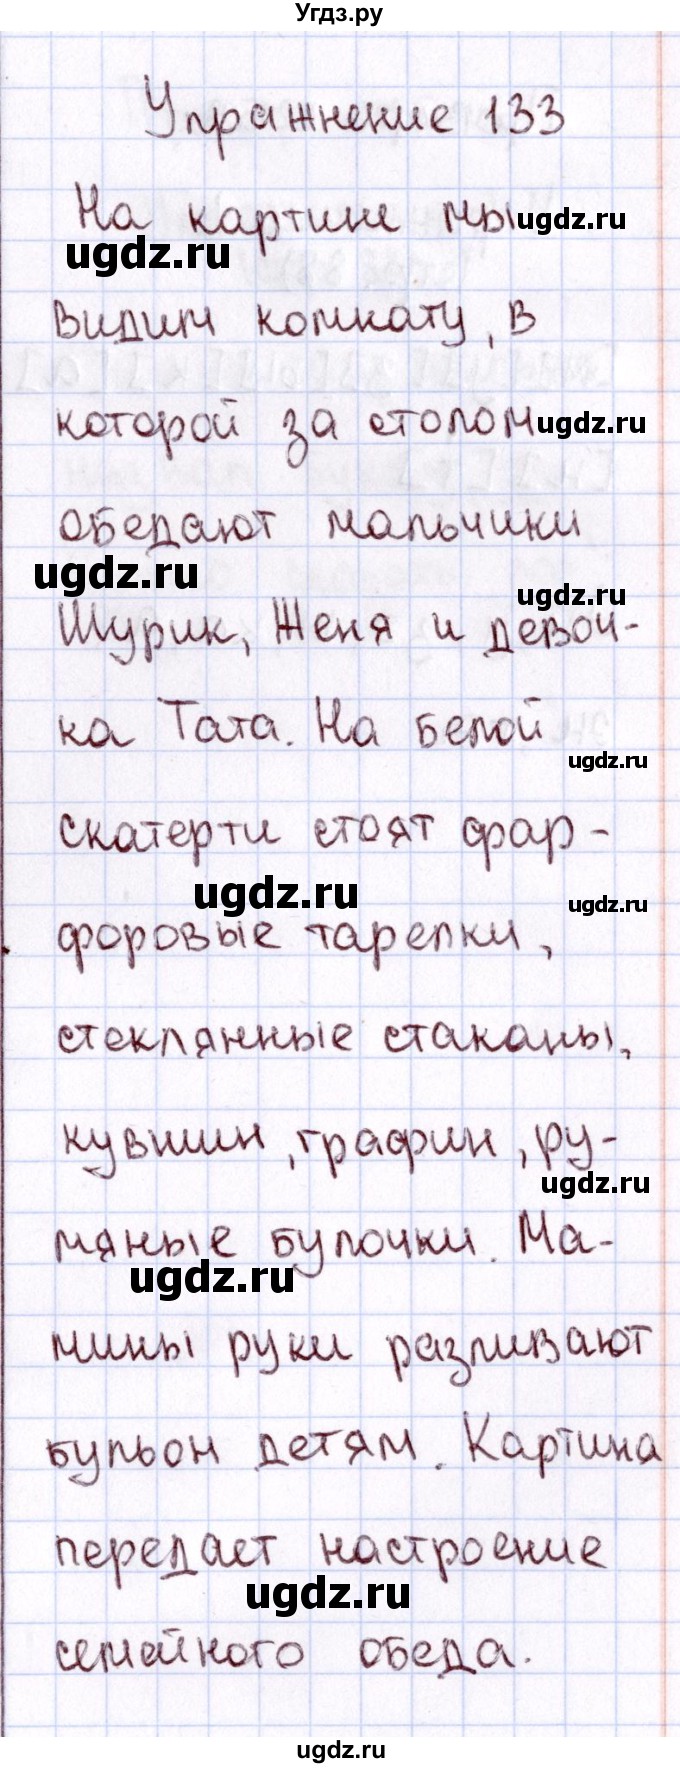 Угдз.ру
Упражнение 133
На картине мы
ugdz.ru
ugdz.ru
видим комнату, в
которой за столом
ugdz.ru
обедают мальчики
ugdz.ru
ugdz.ru
Шурик, Женя и девой-
ка Тата. На белой
ugdz.ru
скатерти стоят фар-
ugdz.ru
ugdz.ru
форовые тарелки,
стеклянные стаканы,
кувшин, графин, ру-
ugdz.ru
мяные булочки. Ма-
ugdz.ru
мины руки разливают
бульон детям. Картина
передает настроение
ugdz.ru
семейного обеда.
ugdz.ru